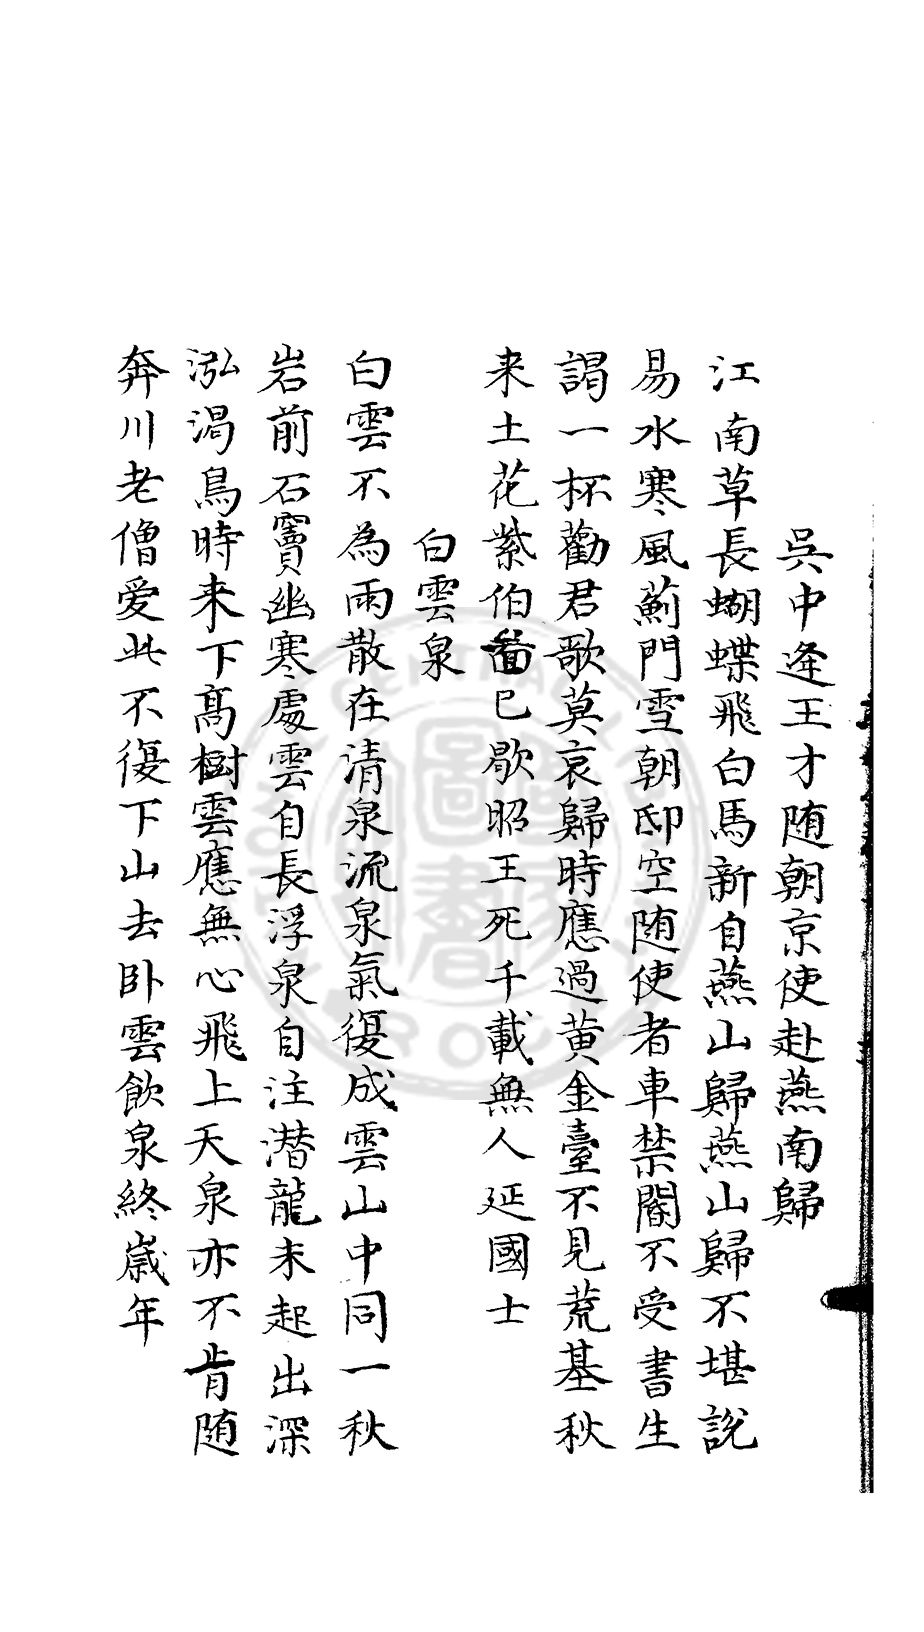 吳中逢王才随朝京使赴燕南歸
江南草長蝴蝶飛白馬新自燕山歸燕山歸不堪說
易水寒風薊門雪朝邸空随使者車禁閽不受書生
謁一杯勸君歌莫哀歸時應過黄金臺不見荒基秋
来土花紫伯啚巳歇昭王死千載無人延國士
白雲泉
白雲不為雨散在清泉流泉氣復成雲山中同一秋
岩前石竇幽寒處雲自長浮泉自注潜龍未起出深
泓渴鳥時来下髙樹雲應無心飛上天泉亦不肯随
奔川老僧愛此不復下山去卧雲飲泉終歳年